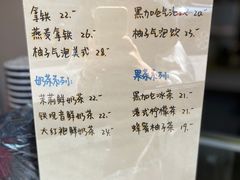 拿铁 22.-
燕麦拿铁 26.-
柚子气泡美式 28.-
奶茶系列:
茉莉鲜奶茶 22.-
铁观音鲜奶茶 22.-
大红袍鲜奶茶 24.-
黑加仑气泡 20.-
柚子气泡饮 23.-
果茶系列:
黑加仑冰茶 21.-
港式柠檬茶 21.-
蜂蜜柚子茶 19.-